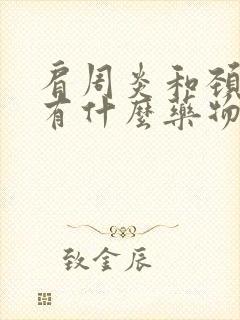 肩周炎和頚
有什麼藥物
致金辰